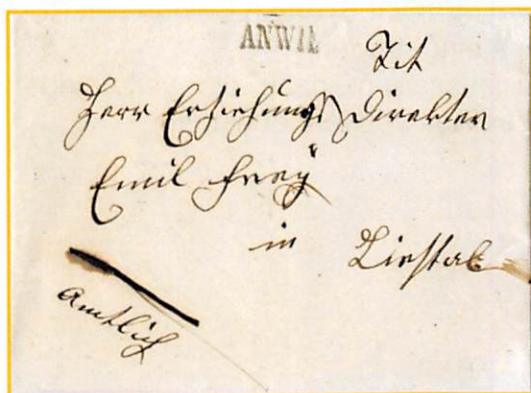 ANWIL
Tit
Herr Erziehungs Direktor
Emil Frey
in Liestal
Amtlich